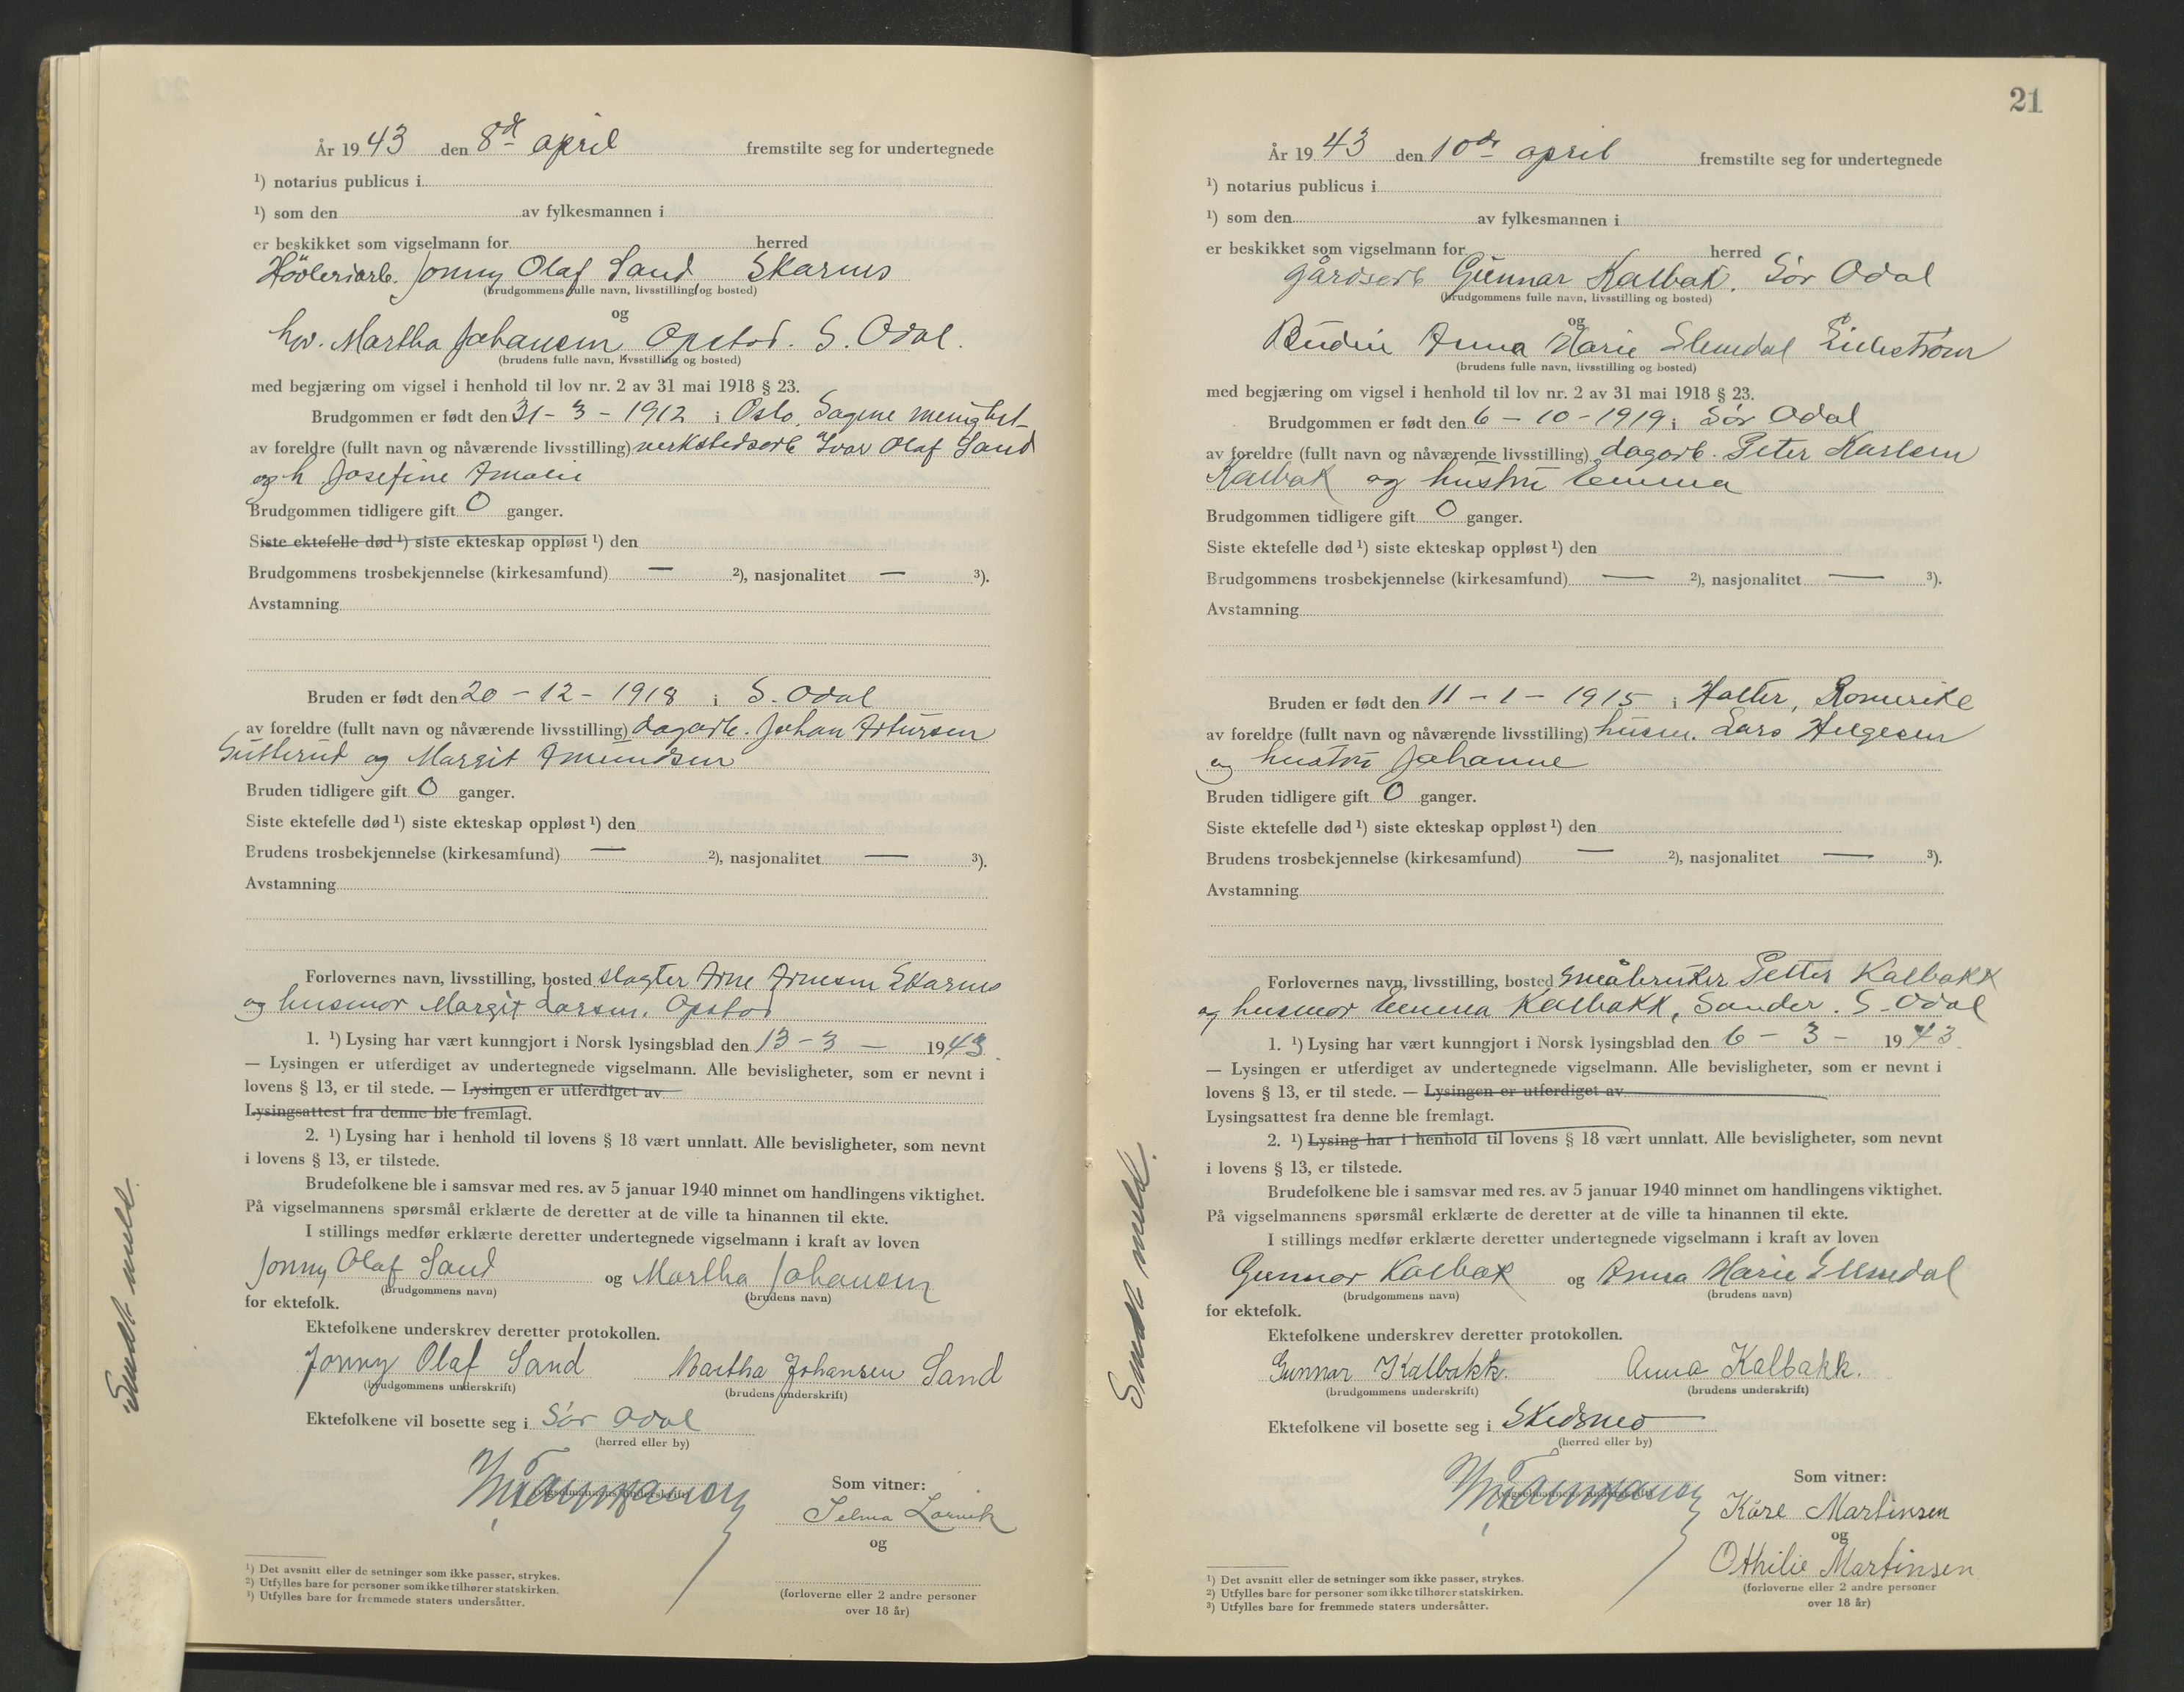 År 1943 den 8de april fremstilte seg for undertegnede
¹) notarius publicus i
¹) som den av fylkesmannen i
er beskikket som vigselmann for herred
Høvleriarb. Jonny Olaf Sand Skarnes
(brudgommens fulle navn, livsstilling og bosted)
og
hv. Martha Johansen Opstad. S. Odal.
(brudens fulle navn, livsstilling og bosted)
med begjæring om vigsel i henhold til lov nr. 2 av 31 mai 1918 § 23.
Brudgommen er født den 31 - 3 - 1912 i Oslo, Sagene menighet
av foreldre (fullt navn og nåværende livsstilling) verkstedsarb Ivar Olaf Sand
og h Josefine Amalie
Brudgommen tidligere gift 0 ganger.
Siste ektefelle død ¹) siste ekteskap oppløst ¹) den
Brudgommens trosbekjennelse (kirkesamfund) — ²), nasjonalitet — ³).
Avstamning
Bruden er født den 20 - 12 - 1918 i S. Odal
av foreldre (fullt navn og nåværende livsstilling) dagarb. Johan Artursen
og Margit Amundsen
Bruden tidligere gift 0 ganger.
Siste ektefelle død ¹) siste ekteskap oppløst ¹) den
Brudens trosbekjennelse (kirkesamfund) — ²), nasjonalitet — ³).
Avstamning
Forlovernes navn, livsstilling, bosted slagter Arne Arnesen Skarnes
og husmor Margit Larsen, Opstad
1. ¹) Lysing har vært kunngjort i Norsk lysingsblad den 13 - 3 - 1943.
— Lysingen er utferdiget av undertegnede vigselmann. Alle bevisligheter, som er nevnt i
lovens § 13, er til stede. — Lysingen er utferdiget av
Lysingsattest fra denne ble fremlagt.
2. ¹) Lysing har i henhold til lovens § 18 vært unnlatt. Alle bevisligheter, som nevnt
i lovens § 13, er tilstede.
Brudefolkene ble i samsvar med res. av 5 januar 1940 minnet om handlingens viktighet.
På vigselmannens spørsmål erklærte de deretter at de ville ta hinannen til ekte.
I stillings medfør erklærte deretter undertegnede vigselmann i kraft av loven
Jonny Olaf Sand og Martha Johansen
(brudgommens navn) (brudens navn)
for ektefolk.
Ektefolkene underskrev deretter protokollen.
Jonny Olaf Sand Martha Johansen Sand
(brudgommens underskrift) (brudens underskrift)
Ektefolkene vil bosette seg i Sør Odal
(herred eller by)
(vigselmannens underskrift)
Som vitner:
Selma
og
(forloverne eller 2 andre personer
over 18 år)
¹) Det avsnitt eller de setninger som ikke passer, strykes.
²) Utfylles bare for personer som ikke tilhører statskirken.
³) Utfylles bare for fremmede staters undersåtter.
Sendt meld.
21
År 1943 den 10de april fremstilte seg for undertegnede
¹) notarius publicus i
¹) som den av fylkesmannen i
er beskikket som vigselmann for herred
gårdsarb Gunnar Kalbak. Sør Odal
(brudgommens fulle navn, livsstilling og bosted)
og
Anna Marie Elmedal Lillestrøm
(brudens fulle navn, livsstilling og bosted)
med begjæring om vigsel i henhold til lov nr. 2 av 31 mai 1918 § 23.
Brudgommen er født den 6 - 10 - 1919 i Sør Odal
av foreldre (fullt navn og nåværende livsstilling) dagarb. Peter Karlsen
Kalbak og hustru Emma
Brudgommen tidligere gift 0 ganger.
Siste ektefelle død ¹) siste ekteskap oppløst ¹) den
Brudgommens trosbekjennelse (kirkesamfund) — ²), nasjonalitet — ³).
Avstamning
Bruden er født den 11 - 1 - 1915 i Holter, Romerike
av foreldre (fullt navn og nåværende livsstilling) husm. Lars Helgesen
og hustru Johanne
Bruden tidligere gift 0 ganger.
Siste ektefelle død ¹) siste ekteskap oppløst ¹) den
Brudens trosbekjennelse (kirkesamfund) — ²), nasjonalitet — ³).
Avstamning
Forlovernes navn, livsstilling, bosted småbruker Petter Kalbakk
og husmor Emma Kalbakk, Sander. S. Odal
1. ¹) Lysing har vært kunngjort i Norsk lysingsblad den 6 - 3 - 1943.
— Lysingen er utferdiget av undertegnede vigselmann. Alle bevisligheter, som er nevnt i
lovens § 13, er til stede. — Lysingen er utferdiget av
Lysingsattest fra denne ble fremlagt.
2. ¹) Lysing har i henhold til lovens § 18 vært unnlatt. Alle bevisligheter, som nevnt
i lovens § 13, er tilstede.
Brudefolkene ble i samsvar med res. av 5 januar 1940 minnet om handlingens viktighet.
På vigselmannens spørsmål erklærte de deretter at de ville ta hinannen til ekte.
I stillings medfør erklærte deretter undertegnede vigselmann i kraft av loven
Gunnar Kalbak og Anna Marie Elmedal
(brudgommens navn) (brudens navn)
for ektefolk.
Ektefolkene underskrev deretter protokollen.
Gunnar Kalbakk. Anna Kalbakk.
(brudgommens underskrift) (brudens underskrift)
Ektefolkene vil bosette seg i Skedsmo
(herred eller by)
(vigselmannens underskrift)
Som vitner:
Kåre Martinsen
og
Othilie Martinsen
(forloverne eller 2 andre personer
over 18 år)
¹) Det avsnitt eller de setninger som ikke passer, strykes.
²) Utfylles bare for personer som ikke tilhører statskirken.
³) Utfylles bare for fremmede staters undersåtter.
Sendt meld.